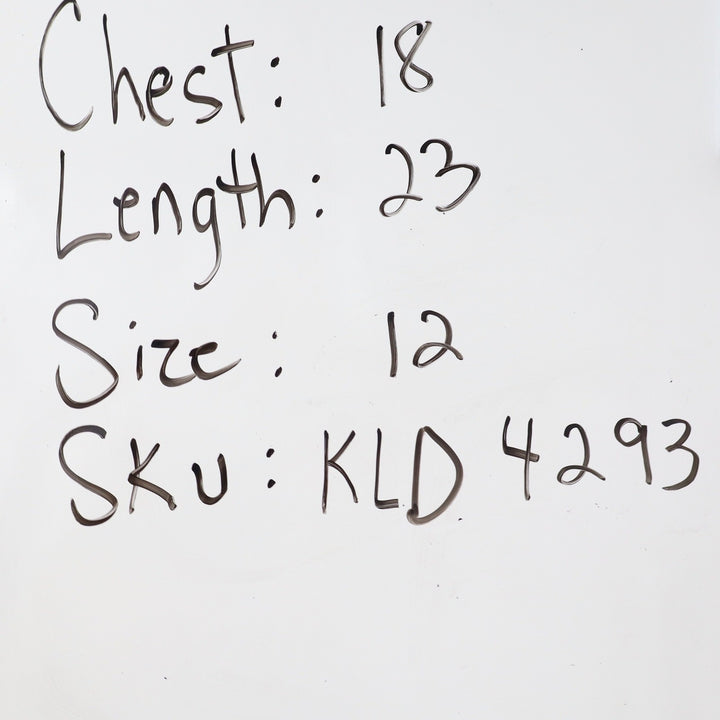 Chest: 18
Length: 23
Size: 12
SKU: KLD 4293